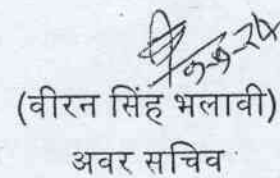 (वीरन सिंह भलावी)
अवर सचिव